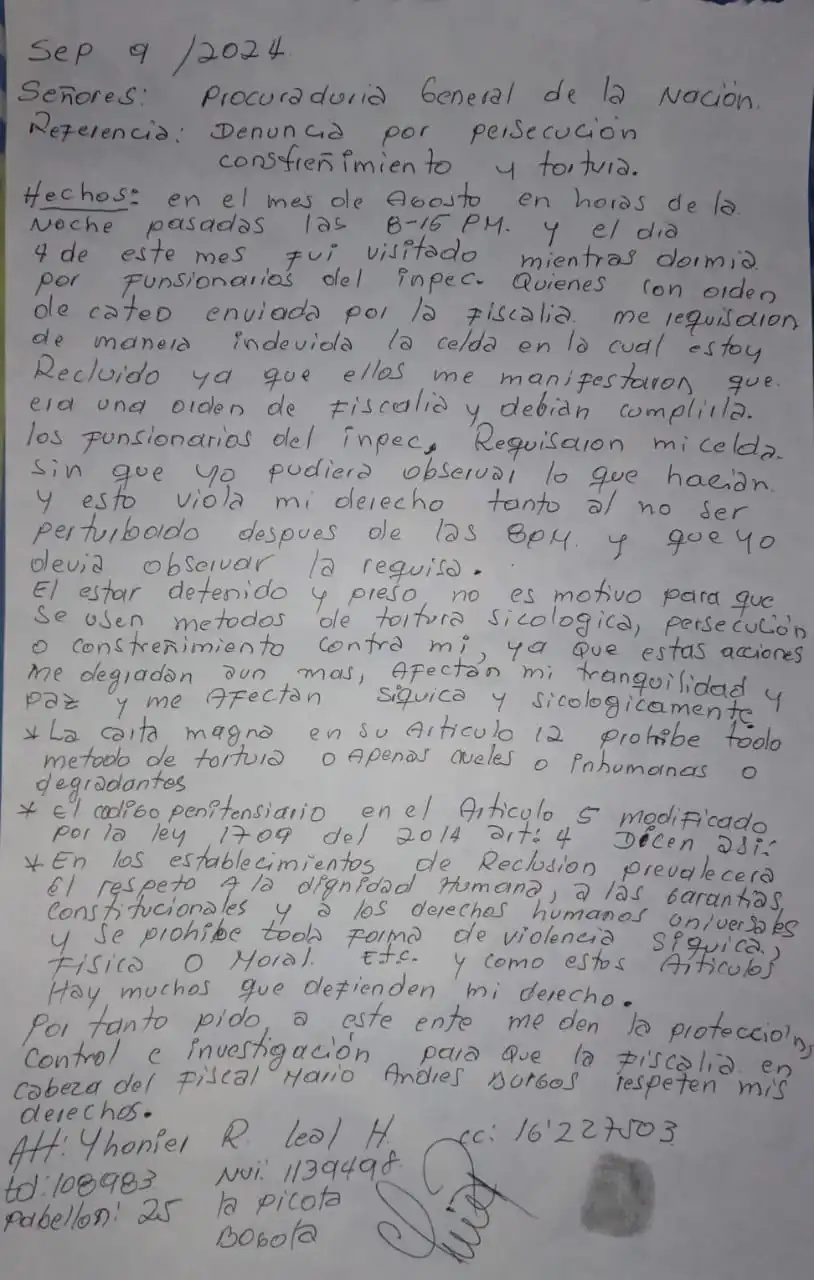 Sep 9 /2024.
Señores: Procuraduria General de la Nación.
Referencia: Denuncia por persecución
constreñimiento y tortura.
Hechos: en el mes de Agosto en horas de la
Noche pasadas las 8-15 PM. y el dia
4 de este mes fui visitado mientras dormia
por funsionarios del inpec. Quienes con orden
de cateo enviada por la Fiscalia. me requisaron
de manera indevida la celda en la cual estoy
Recluido ya que ellos me manifestaron que.
era una orden de Fiscalia y debian cumplirla.
los funsionarios del inpec, Requisaron mi celda.
sin que yo pudiera observar lo que hacian.
y esto viola mi derecho tanto al no ser
perturbado despues de las 8PM. y que yo
devia observar la requisa.
El estar detenido y preso no es motivo para que
se usen metodos de tortura sicologica, persecución
o constreñimiento contra mi, ya que estas acciones
me degradan aun mas, Afectan mi tranquilidad y
paz y me Afectan siquica y sicologicamente
* La carta magna en su Articulo 12 prohibe todo
metodo de tortura o Apenas crueles o inhumanas o
degradantes
* El codigo penitensiario en el Articulo 5 modificado
por la ley 1709 del 2014 art: 4 Dicen asi:
* En los establecimientos de Reclusion prevalecera
El respeto A la dignidad Humana, a las garantias
constitucionales y a los derechos humanos universales
y se prohibe toda forma de violencia siquica,
Fisica o Moral. Etc. y como estos Articulos
Hay muchos que defienden mi derecho.
Por tanto pido a este ente me den la protección,
control e investigación para que la Fiscalia en
cabeza del Fiscal Mario Andres Burgos respeten mis
derechos.
Att: Yhonier R leal H. cc: 16'227503
td: 108983 Nui: 1139498
pabellon: 25 la picota
Bogota